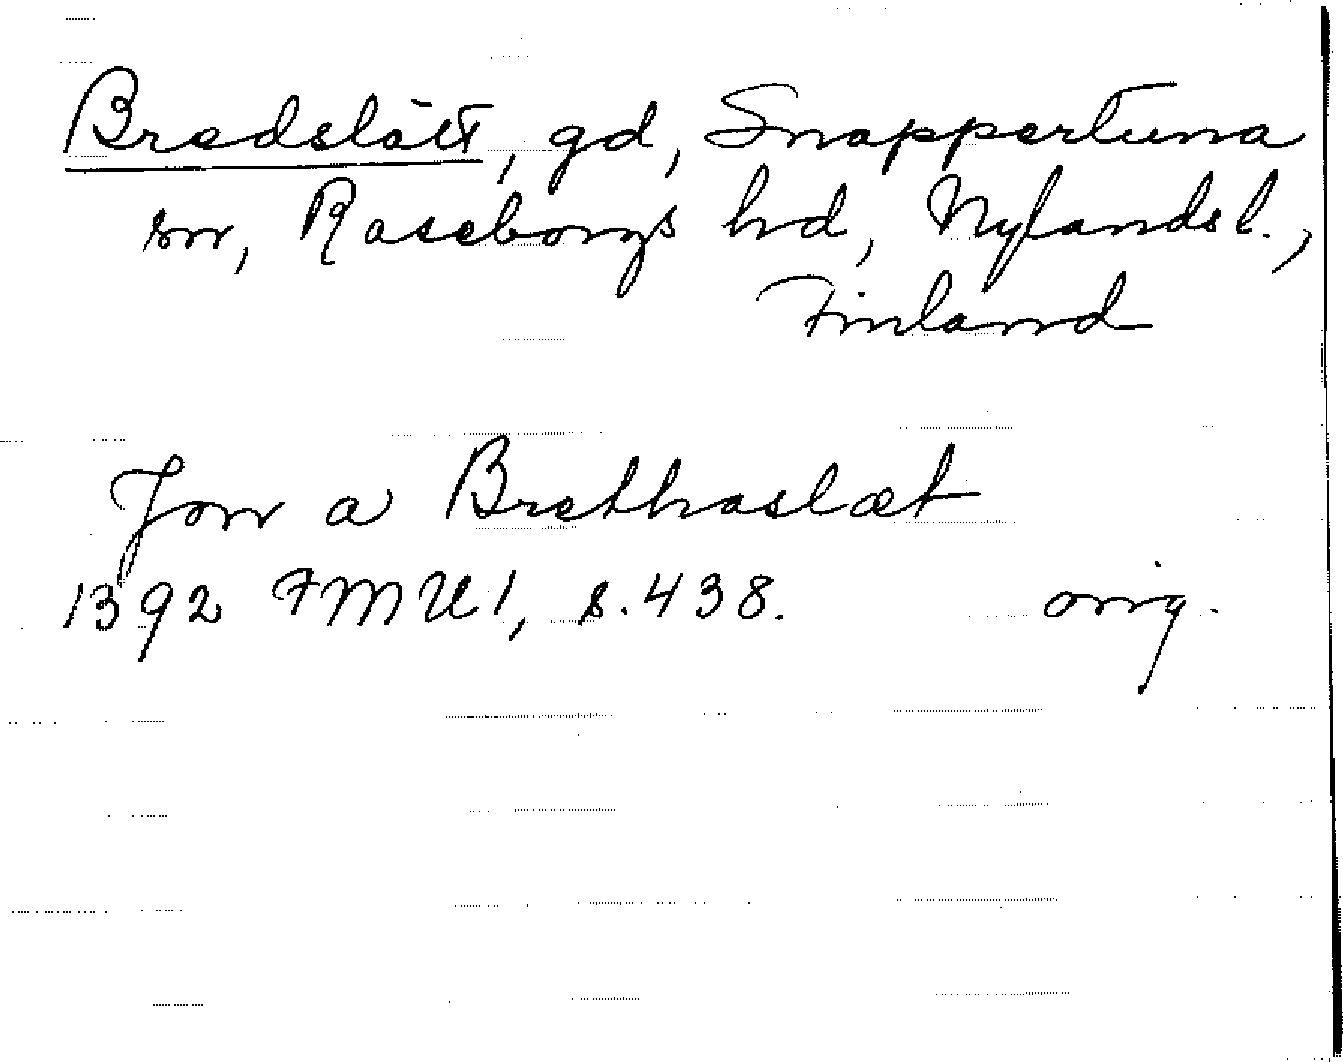 Bredslätt, gd, Snappertuna
sn, Raseborgs hd, Nylands l.,
Finland
Jon a Brethaslæt
1392 FMU 1, s. 438. orig.